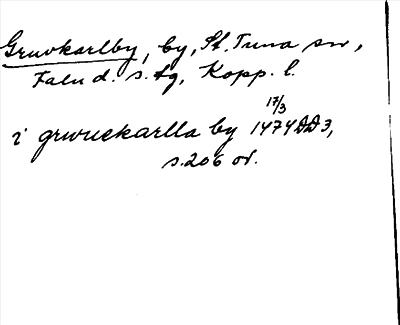 Gruvkarlby, by, St. Tuna sn,
Falu d. s. tg, Kopp. l.
17/3
i grwuekarlla by 1474 DD 3,
s. 206 or.